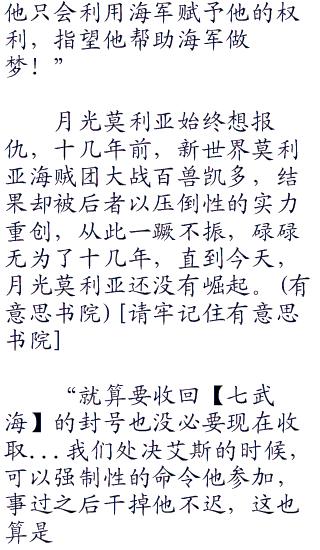 他只会利用海军赋予他的权
利，指望他帮助海军做
梦！”
月光莫利亚始终想报
仇，十几年前，新世界莫利
亚海贼团大战百兽凯多，结
果却被后者以压倒性的实力
重创，从此一蹶不振，碌碌
无为了十几年，直到今天，
月光莫利亚还没有崛起。(有
意思书院) [请牢记住有意思
书院]
“就算要收回【七武
海】的封号也没必要现在收
取...我们处决艾斯的时候，
可以强制性的命令他参加，
事过之后干掉他不迟，这也
算是